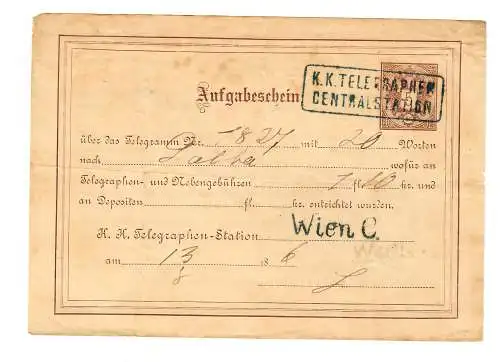 K.K. TELEGRAPHEN
CENTRALSTATION
Aufgabeschein
über das Telegramm Nr. 1827 mit 20 Worten
nach wofür an
Telegraphen- und Nebengebühren 1 fl. kr. und
an Depositen fl. kr. entrichtet wurden.
Wien C.
K. K. Telegraphen-Station
am 13/8 186